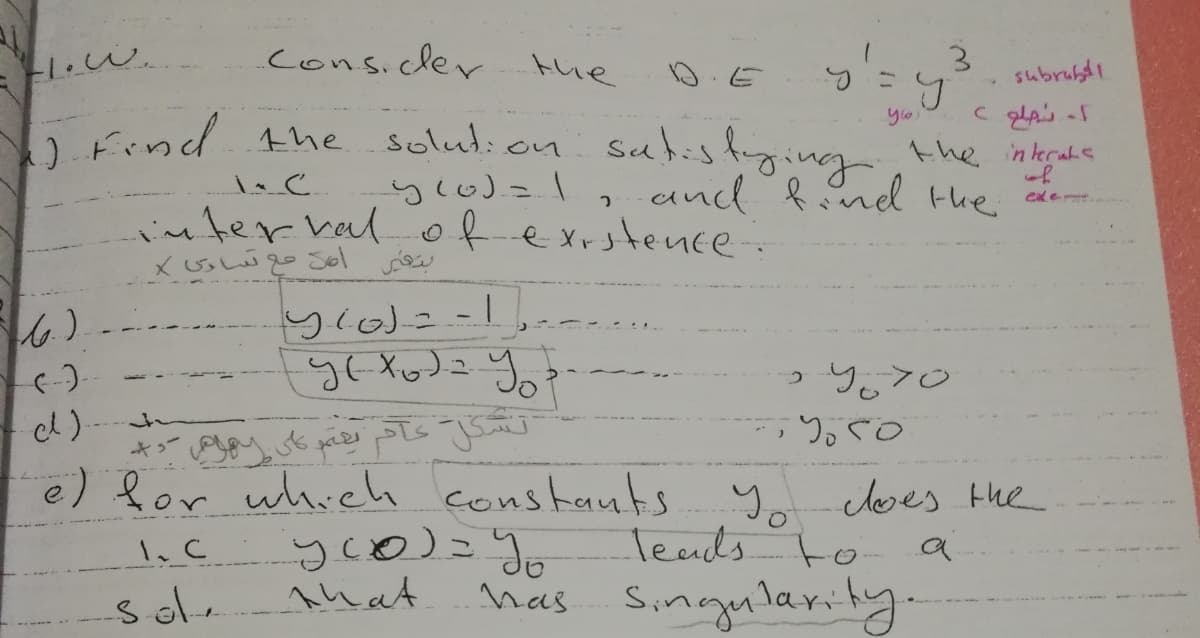 H.W. Consider the D.E y' = y³.
a) Find the solution satisfying the
I.C y(0)=1, and find the
interval of existence.
b) ------- y(0) = -1, ------
c) ----- y(x₀) = y₀, ------- , y₀>0
d) -- , y₀<0
e) for which constants y₀ does the
I.C y(0) = y₀ leads to a
sol. that has singularity.